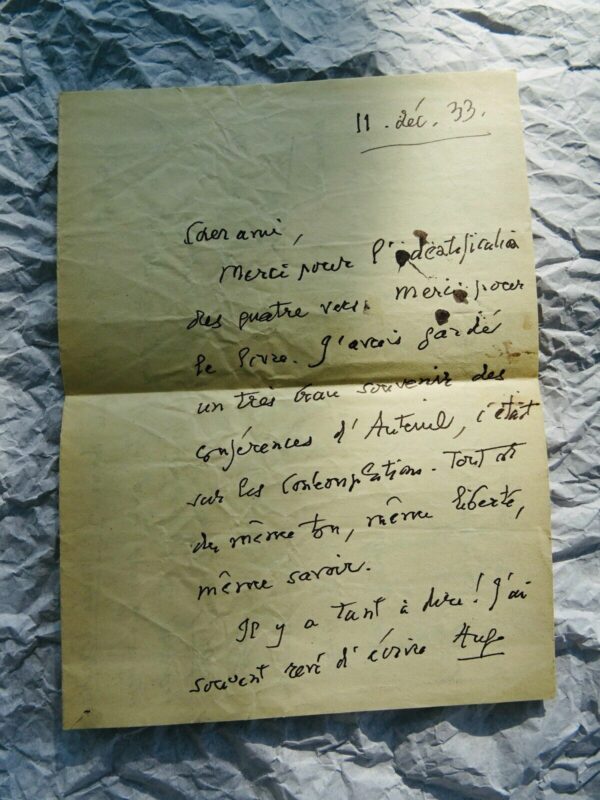 11. déc. 33.
Cher ami,
Merci pour l'identification
des quatre vers. Merci pour
le livre. J'avais gardé
un très beau souvenir des
conférences d'Auteuil, c'était
sur les Contemplations. Tout est
du même ton, même liberté,
même savoir.
Il y a tant à dire ! J'ai
souvent rêvé d'écrire